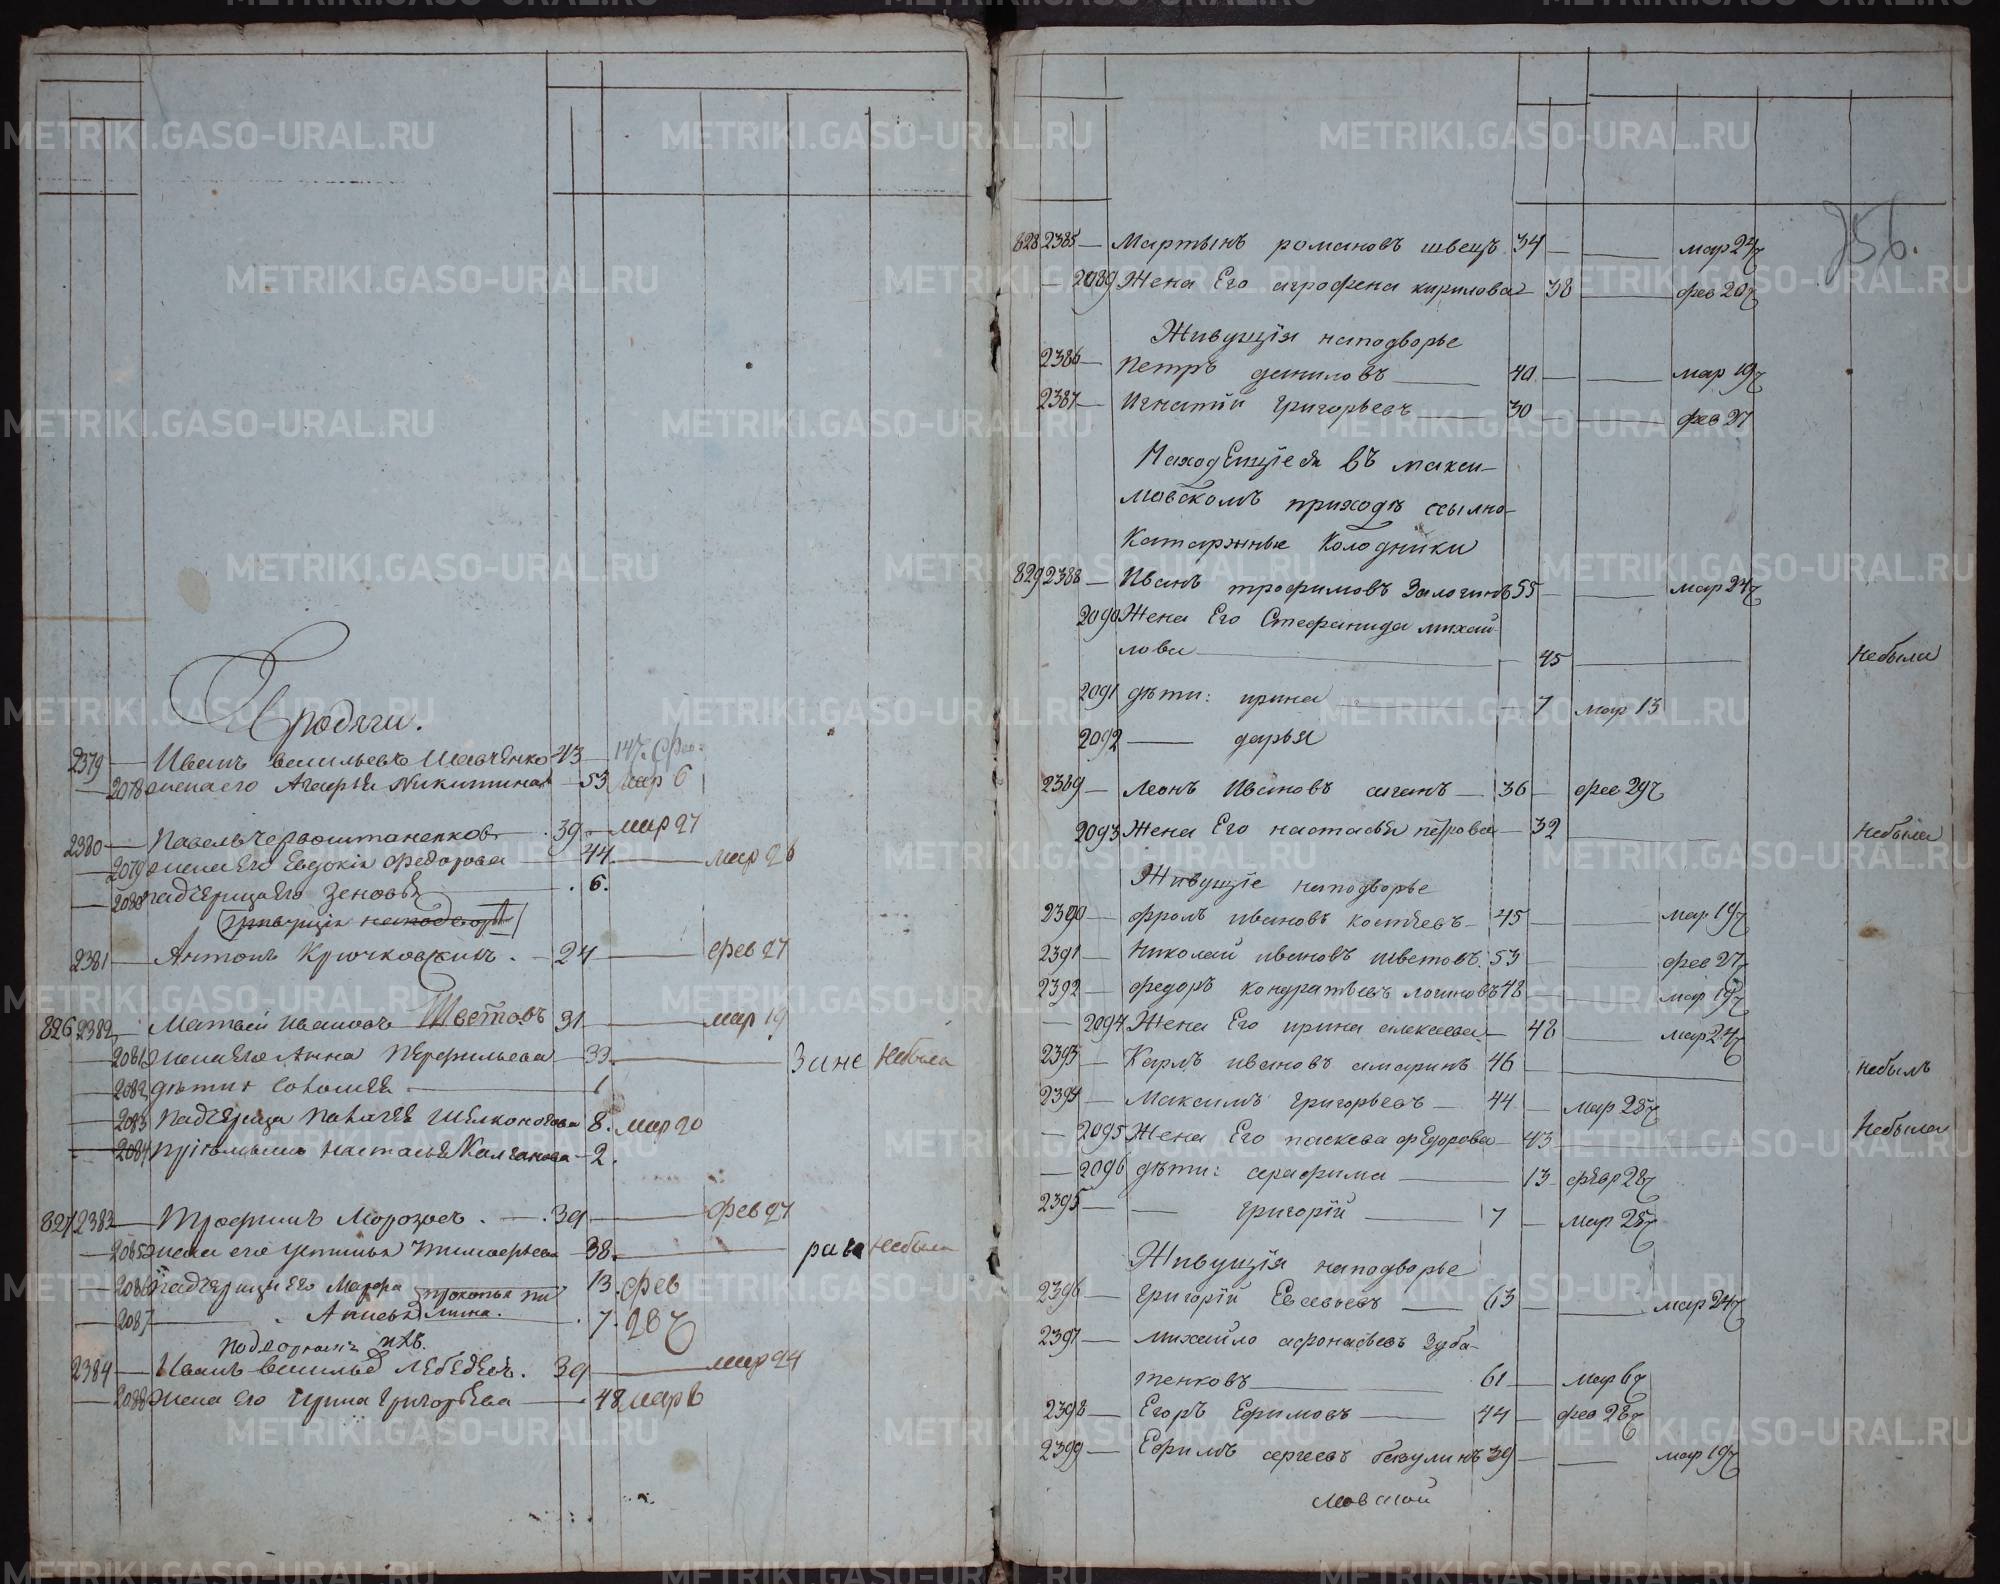 Бродяги.
2379 — Иванъ васильевъ Шевченко 43 — 147. фев:
— 2078 жена его Агафья Никитина — 53 мар 6
2380 — Павелъ Червоштаненковъ — 39 — мар 27
— 2079 жена Его Евдокія Федорова — 44 — мар 26
— 2080 падчерица Его Зеновья — 6.
2381 — Антонъ Крючковскихъ — 24 — фев 27
826 2382 Матвей Ивановъ Шветовъ 31 — мар 19
— 2081 жена Его Анна Перфильева — 33. — небыла
— 2082 дѣти — 1
— 2083 падчерица Пелагея Шелконогова 8. мар 20
— 2084 Настасья Калганова — 2.
827 2383 — Трофимъ Морозовъ. — 39 — фев 27
— 2085 жена его Устинья Тимоферьева — 38. — небыла
— 2086 падчерицы Его Марфа 13. фев
— 2087 — Анисья 7. 287
2384 — Иванъ васильевъ Лебедевъ. 39 — мар 24
— 2088 жена его Ирина Григорьева — 48 мар 6
256.
828 2385 — Мартынъ романовъ швецъ 34 — мар 247
— 2089 Жена Его агрофена кирилова — 38 — фев 207
Живущія наподворье
2386 — Петръ даниловъ — 40 — мар 197
2387 — Игнатій григорьевъ — 30 — фев 27
Находещіеся въ макси-
мовскомъ приходѣ ссылно-
Катаржные Колодники
829 2388 — Иванъ трофимовъ Залогинъ 55 — мар 247
2090 Жена Его Стефанида михай-
лова — 45 — небыла
2091 дѣти: ирина — 7 мар 13
2092 — дарья
2389 — Леонъ Ивановъ сиганъ — 36 — фев 297
2093 Жена Его настасья петрова — 32 — небыла
Живущіе наподворье
2390 — фролъ ивановъ — 45 — мар 197
2391 — Николай ивановъ шветовъ. 53 — фев 27
2392 — федоръ кондратьевъ логиновъ 48 — мар 197
— 2094 Жена Его ирина алексеева — 48 — мар 247
2393 — Карлъ ивановъ амаринъ 46 — небылъ
2394 — Максимъ григорьевъ — 44 — мар 287
— 2095 Жена Его паскева федорова — 43 — небыла
— 2096 дѣти: серафима — 13 — февр 287
2395 — григорій — 7 — мар 287
Живущія наподворье
2396 — григорій Евсевьевъ — 63 — мар 247
2397 — михайло афонасьевъ Зуба-
тенковъ — 61 — мар 67
2398 — Егоръ Ефимовъ — 44 — фев 287
2399 — Ефимъ сергеевъ бакулинъ 39 — мар 197